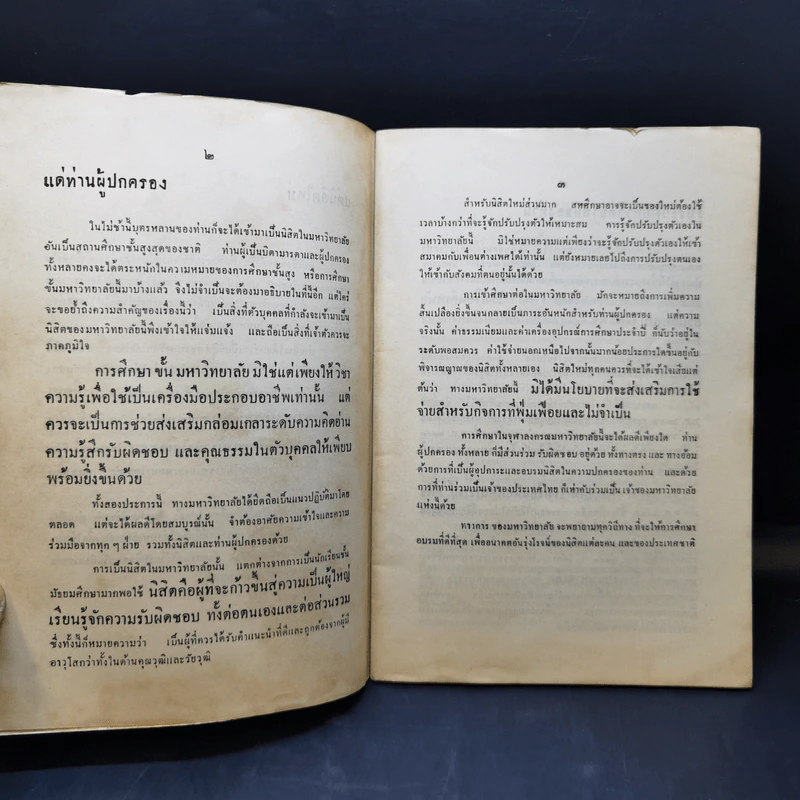 ๒
แด่ท่านผู้ปกครอง
ในไม่ช้านี้บุตรหลานของท่านก็จะได้เข้ามาเป็นนิสิตในมหาวิทยาลัย
อันเป็นสถานศึกษาชั้นสูงสุดของชาติ ท่านผู้เป็นบิดามารดาและผู้ปกครอง
ทั้งหลายคงจะได้ตระหนักในความหมายของการศึกษาชั้นสูง หรือการศึกษา
ขั้นมหาวิทยาลัยนี้มาบ้างแล้ว จึงไม่จำเป็นจะต้องมาอธิบายในที่นี้อีก แต่ใคร่
จะขอย้ำถึงความสำคัญของเรื่องนี้ว่า เป็นสิ่งที่ตัวบุคคลที่กำลังจะเข้ามาเป็น
นิสิตของมหาวิทยาลัยนี้พึงเข้าใจให้แจ่มแจ้ง และถือเป็นสิ่งที่เจ้าตัวควรจะ
ภาคภูมิใจ
การศึกษา ขั้น มหาวิทยาลัย มิใช่แต่เพียงให้วิชา
ความรู้เพื่อใช้เป็นเครื่องมือประกอบอาชีพเท่านั้น แต่
ควรจะเป็นการช่วยส่งเสริมกล่อมเกลาระดับความคิดอ่าน
ความรู้สึกรับผิดชอบ และคุณธรรมในตัวบุคคลให้เพียบ
พร้อมยิ่งขึ้นด้วย
ทั้งสองประการนี้ ทางมหาวิทยาลัยได้ยึดถือเป็นแนวปฏิบัติมาโดย
ตลอด แต่จะได้ผลดีโดยสมบูรณ์นั้น จำต้องอาศัยความเข้าใจและความ
ร่วมมือจากทุก ๆ ฝ่าย รวมทั้งนิสิตและท่านผู้ปกครองด้วย
การเป็นนิสิตในมหาวิทยาลัยนั้น แตกต่างจากการเป็นนักเรียนชั้น
มัธยมศึกษามากพอใช้ นิสิตคือผู้ที่จะก้าวขึ้นสู่ความเป็นผู้ใหญ่
เรียนรู้จักความรับผิดชอบ ทั้งต่อตนเองและต่อส่วนรวม
ซึ่งทั้งนี้ก็หมายความว่า เป็นผู้ที่ควรได้รับคำแนะนำที่ดีและถูกต้องจากผู้มี
อาวุโสกว่าทั้งในด้านคุณวุฒิและวัยวุฒิ
๓
สำหรับนิสิตใหม่ส่วนมาก สหศึกษาอาจจะเป็นของใหม่ต้องใช้
เวลาบ้างกว่าที่จะรู้จักปรับปรุงตัวให้เหมาะสม การรู้จักปรับปรุงตัวเองใน
มหาวิทยาลัยนี้ มิใช่หมายความแต่เพียงว่าจะรู้จักปรับปรุงตัวเองให้เข้า
สมาคมกับเพื่อนต่างเพศได้เท่านั้น แต่ยังหมายเลยไปถึงการปรับปรุงตนเอง
ให้เข้ากับสังคมที่ตนอยู่นั้นได้ด้วย
การเข้าศึกษาต่อในมหาวิทยาลัย มักจะหมายถึงการเพิ่มความ
สิ้นเปลืองยิ่งขึ้นจนกลายเป็นภาระอันหนักสำหรับท่านผู้ปกครอง แต่ความ
จริงนั้น ค่าธรรมเนียมและค่าเครื่องอุปกรณ์การศึกษาประจำปี ก็นับว่าอยู่ใน
ระดับพอสมควร ค่าใช้จ่ายนอกเหนือไปจากนั้นมากน้อยประการใดขึ้นอยู่กับ
พิจารณญาณของนิสิตทั้งหลายเอง นิสิตใหม่ทุกคนควรที่จะได้เข้าใจเสียแต่
ต้นว่า ทางมหาวิทยาลัยนี้ มิได้มีนโยบายที่จะส่งเสริมการใช้
จ่ายสำหรับกิจการที่ฟุ่มเฟือยและไม่จำเป็น
การศึกษาในจุฬาลงกรณมหาวิทยาลัยนี้จะได้ผลดีเพียงใด ท่าน
ผู้ปกครอง ทั้งหลาย ก็มีส่วนร่วม รับผิดชอบ อยู่ด้วย ทั้งทางตรง และ ทางอ้อม
ด้วยการที่เป็นผู้อุปการะและอบรมนิสิตในความปกครองของท่าน และด้วย
การที่ท่านร่วมเป็นเจ้าของประเทศไทย ก็เท่ากับร่วมเป็น เจ้าของมหาวิทยาลัย
แห่งนี้ด้วย
ทางการ ของมหาวิทยาลัย จะพยายามทุกวิถีทาง ที่จะให้การศึกษา
อบรมที่ดีที่สุด เพื่ออนาคตอันรุ่งโรจน์ของนิสิตแต่ละคน และของประเทศชาติ